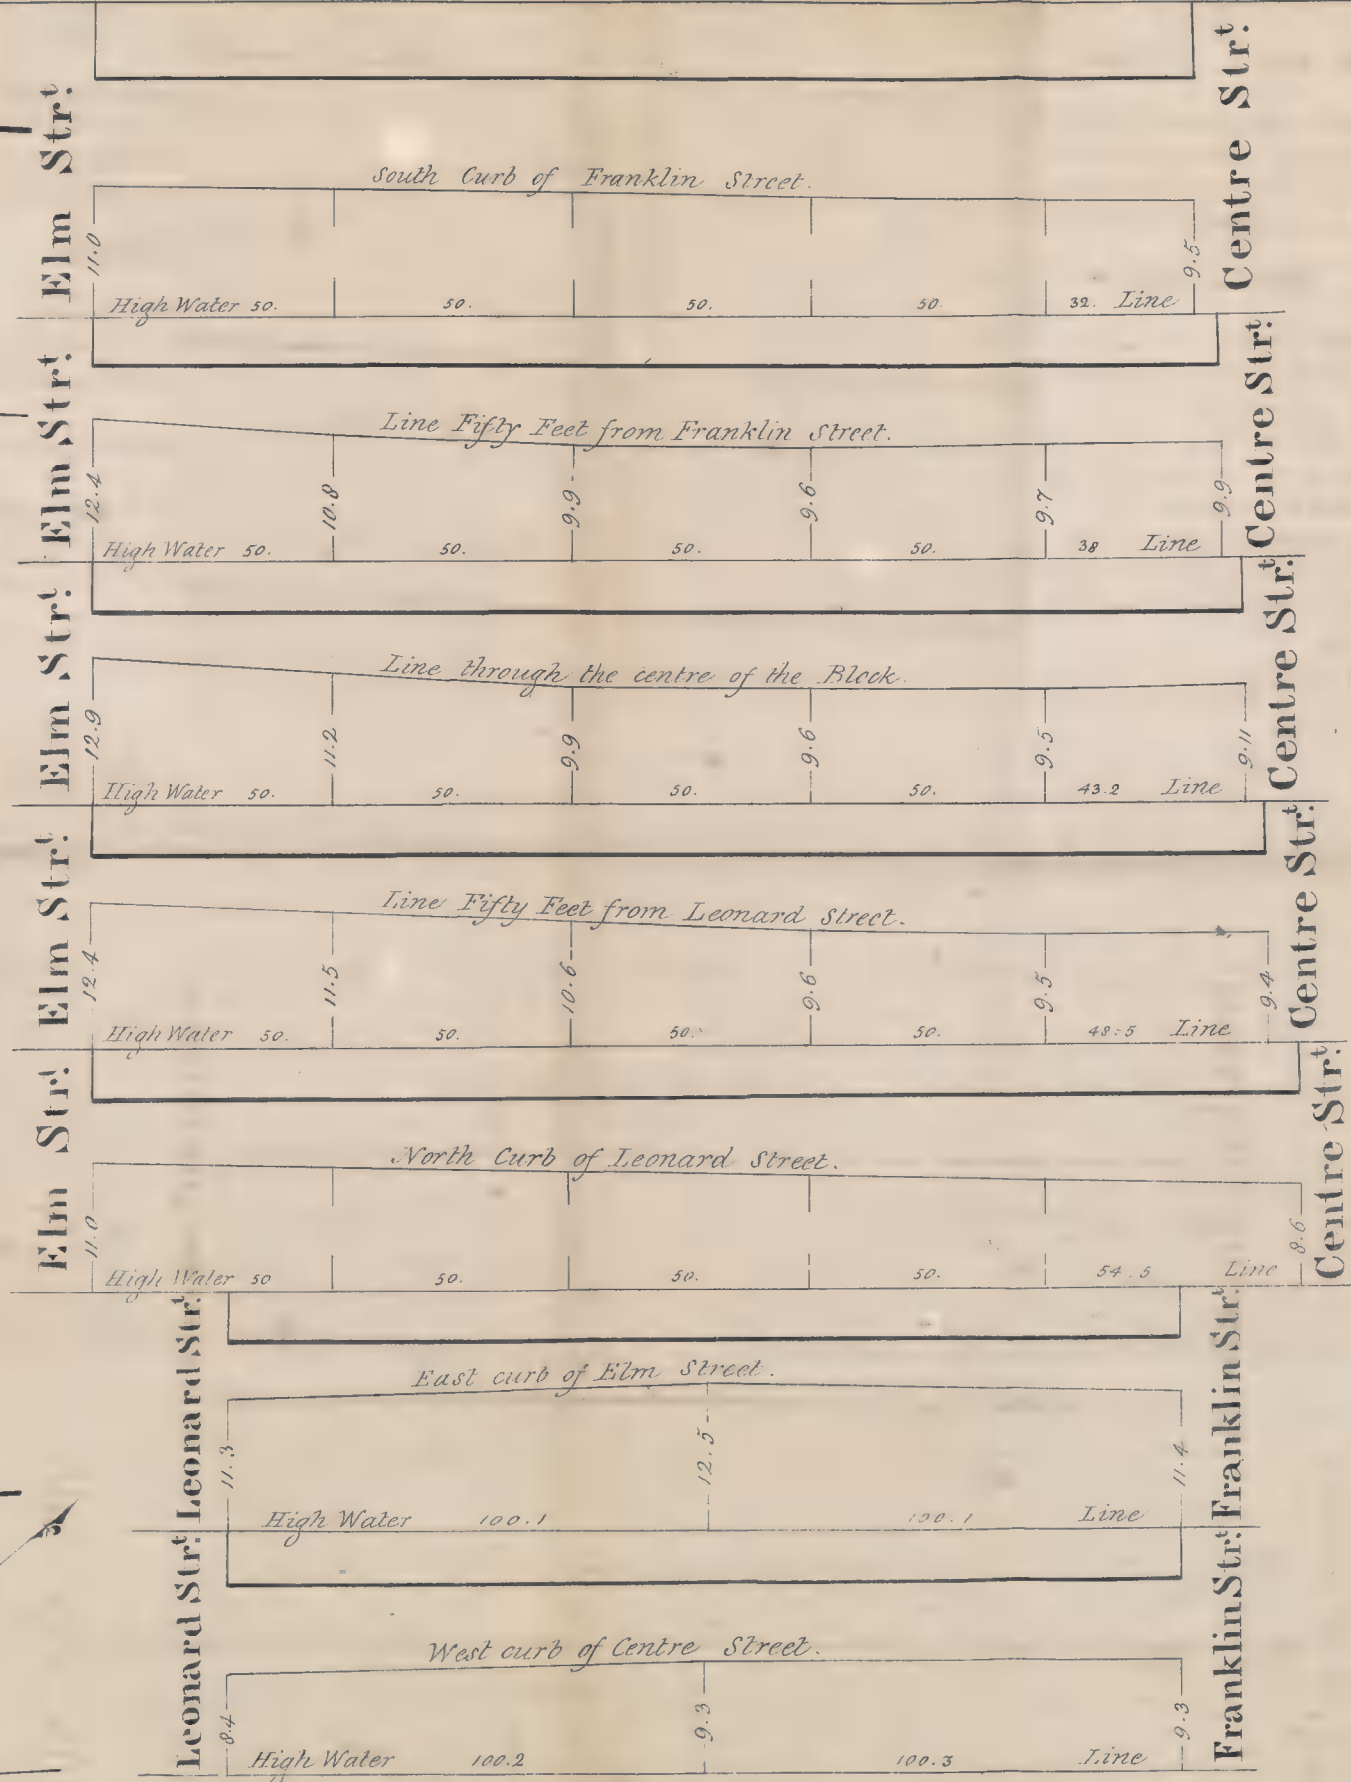 Elm Str.t
Centre Str.t
South Curb of Franklin Street.
11.0
9.5
High Water 50. 50. 50. 50. 32. Line
Elm Str.t
Centre Str.t
Line Fifty Feet from Franklin Street.
12.4 10.8 9.9 9.6 9.7 9.9
High Water 50. 50. 50. 50. 38 Line
Elm Str.t
Centre Str.t
Line through the centre of the Block.
12.9 11.2 9.9 9.6 9.5 9.11
High Water 50. 50. 50. 50. 43.2 Line
Elm Str.t
Centre Str.t
Line Fifty Feet from Leonard Street.
12.4 11.5 10.6 9.6 9.5 9.4
High Water 50. 50. 50. 50. 48.5 Line
Elm Str.t
Centre Str.t
North Curb of Leonard Street.
11.0 8.6
High Water 50 50. 50. 50. 54.5 Line
Leonard Str.t
Franklin Str.t
East curb of Elm Street.
11.3 12.5 11.4
High Water 100.1 100.1 Line
Leonard Str.t
Franklin Str.t
West curb of Centre Street.
8.4 9.3 9.3
High Water 100.2 100.3 Line